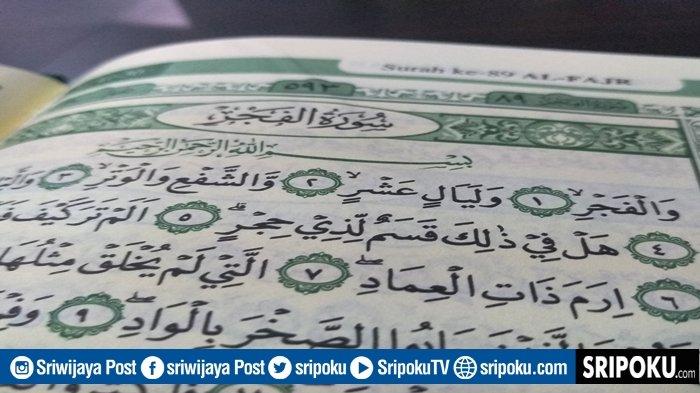 Surah ke-89 AL-FAJR
٥٩٣ ٨٩
سُوْرَةُ الْفَجْرِ
بِسْمِ اللّٰهِ الرَّحْمٰنِ الرَّحِيْمِ
وَالْفَجْرِۙ ١ وَلَيَالٍ عَشْرٍۙ ٢ وَّالشَّفْعِ وَالْوَتْرِۙ ٣
٤ هَلْ فِيْ ذٰلِكَ قَسَمٌ لِّذِيْ حِجْرٍۗ ٥ اَلَمْ تَرَ كَيْفَ
٦ اِرَمَ ذَاتِ الْعِمَادِۖ ٧ الَّتِيْ لَمْ يُخْلَقْ مِثْلُهَا
الصَّخْرَ بِالْوَادِۖ ٩
Sriwijaya Post sriwijaya Post sripoku SripokuTV sripoku.com SRIPOKU.com